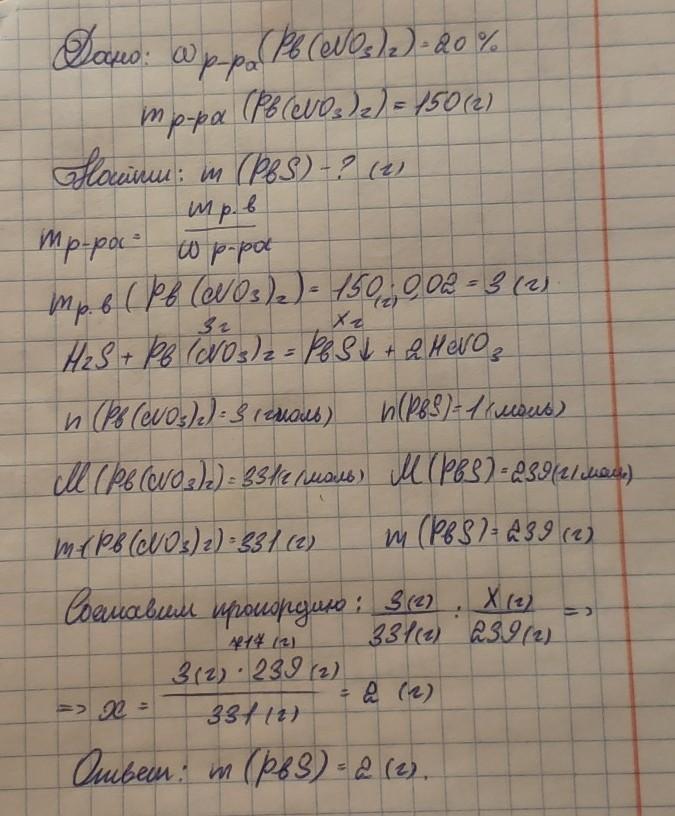 Дано: ω р-ра (Pb(NO₃)₂) = 20%
m р-ра (Pb(NO₃)₂) = 150 (г)
Найти: m (PbS) - ? (г)
m р-ра = m р.в / ω р-ра
m р.в (Pb(NO₃)₂) = 150 (г) · 0,02 = 3 (г)
3г xг
H₂S + Pb(NO₃)₂ = PbS↓ + 2HNO₃
n (Pb(NO₃)₂) = (моль) n(PbS) = 1 (моль)
M (Pb(NO₃)₂) = 331 (г/моль) M (PbS) = 239 (г/моль)
m (Pb(NO₃)₂) = 331 (г) m (PbS) = 239 (г)
Составим пропорцию: 3(г) / 331(г) : X(г) / 239(г) =>
717 (г)
=> x = 3(г) · 239 (г) / 331 (г) = 2 (г)
Ответ: m (PbS) = 2 (г).